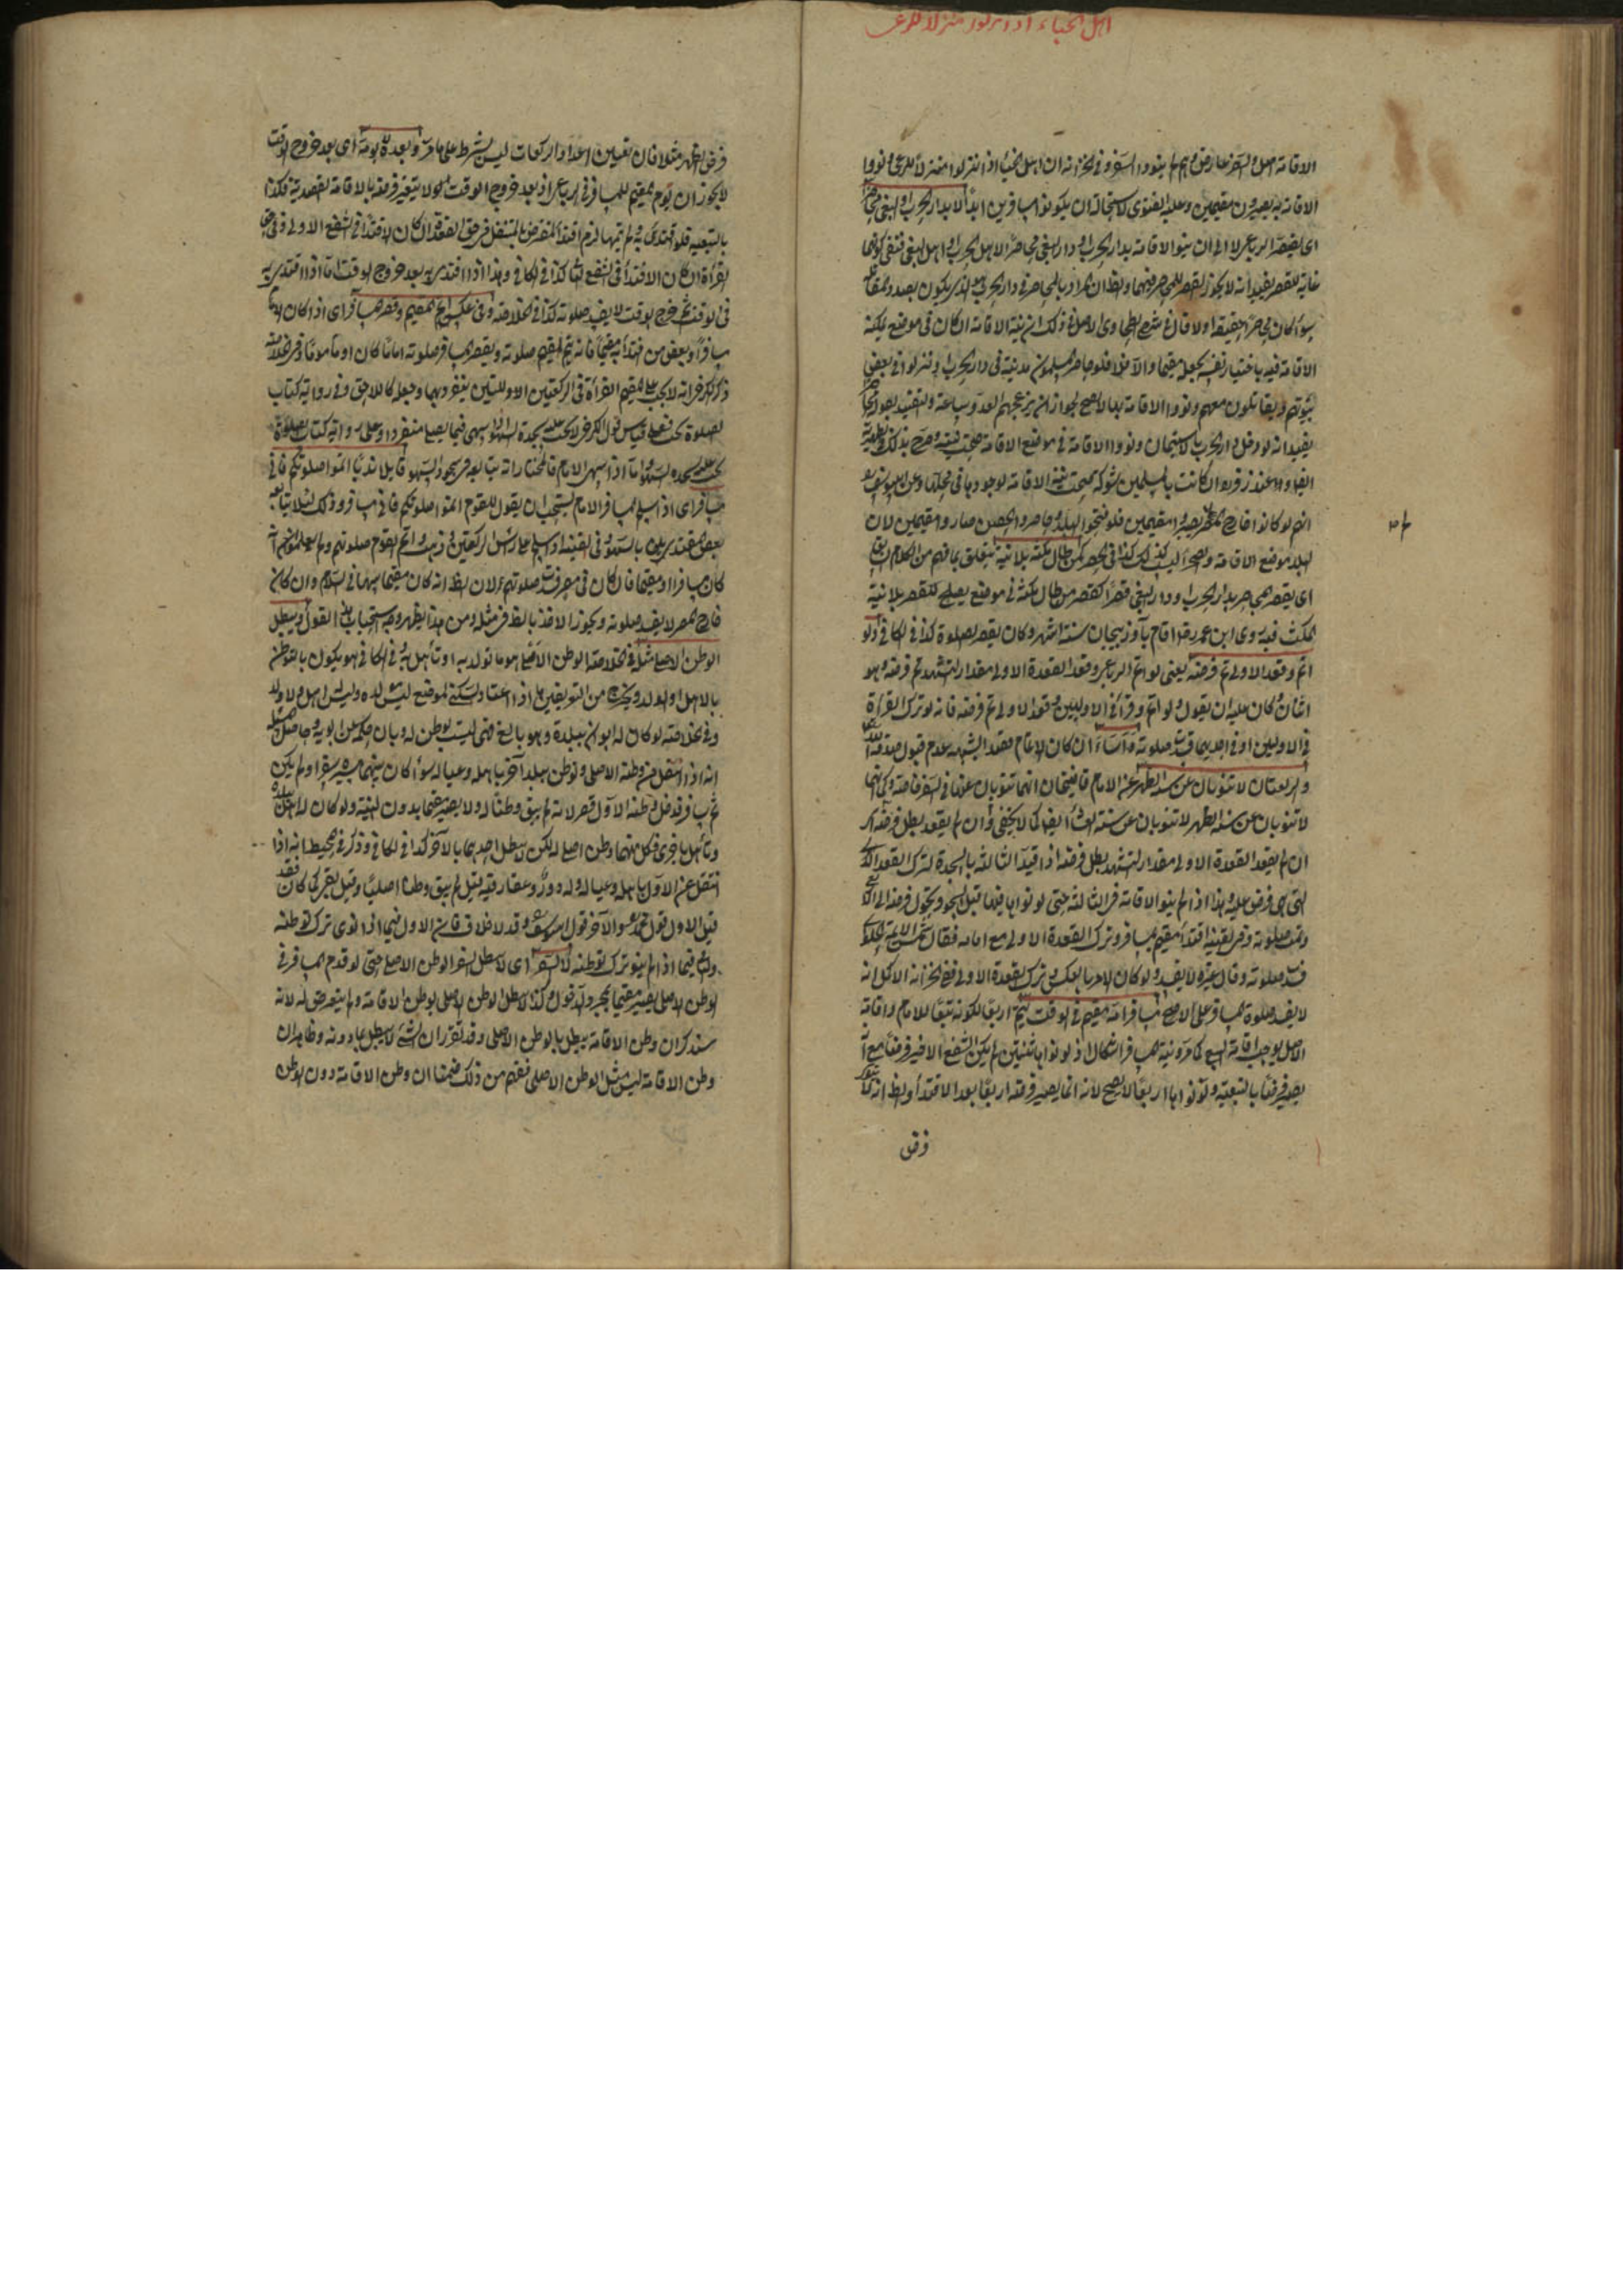 اهل الخباء اذا نزلوا منزلا للرعى
الاقامة اصل والسفر عارض وهم لم ينووا السفر وفى الخزانة ان اهل الخباء اذا نزلوا منزلا للرعى ونووا
الاقامة به يصيرون مقيمين وعليه الفتوى لاستحالة ان يكونوا مسافرين ابدا لا بدار الحرب او البغى محاصرا
اى يقصر الرباعى الا ان ينوى الاقامة بدار الحرب او دار البغى محاصرا لاهل الحرب او اهل البغى
غاية للقصر يفيد انه لا يجوز القصر للمحاصر فيهما والظ ان المراد بالمحاصر فى دار الحرب هو الذى يكون بصدد المقاتلة
سواء كان محاصرا حقيقة اولا قال فى شرح الطحاوى الاصل فى ذلك ان نية الاقامة ان كان فى موضع يمكنه
الاقامة فيه باختيار نفسه يجعله مقيما والا فلا فلو حاصر المسلمون مدينة فى دار الحرب ونزلوا فى بعض
بيوتهم ويقاتلون معهم ونووا الاقامة بها لا يصح لجواز ان يزعجهم العدو ساعة والتقييد بقوله محاصرا
يفيد انه لو دخل دار الحرب باستيمان ونووا الاقامة فى موضع الاقامة صحت نيته وصرح بذلك فى
ايضا وعند زفر ان كانت بالمسلمين شوكة صحت نية الاقامة لوجودها فى محلها وعن ابى يوسف
انهم لو كانوا خارج المصر يصيروا مقيمين فلو فتحوا البلد وحاصروا الحصن صاروا مقيمين لان
البلد موضع الاقامة والصحراء ليست كذلك كذا فى كمن طال مكثه بلا نية يتعلق بما فهم من الكلام السابق
اى يقصر المحاصر بدار الحرب ودار البغى قصرا كقصر من طال مكثه فى موضع يصلح للقصر بلا نية
المكث فيه روى ابن عمر رضـ اقام بآذربيجان ستة اشهر وكان يقصر الصلوة كذا فى الكافى ولو
اتم وقعد الاولى تم فرضه يعنى لو اتم الرباعى وقعد القعدة الاولى مقدار التشهد تم فرضه وهو
اثنان وكان عليه ان يقول ولو اتم وقرأ فى الاوليين وقعد الاولى تم فرضه فانه لو ترك القراءة
فى الاوليين او فى احديهما فسدت صلوته واساء ان كان الاتمام فقد الشبهة بعدم قبول صدقة الله
والركعتان لا تنوبان عن سنة الظهر عند الامام قاضيخان انهما تنوبان عنهما فى السفر خاصة وكما انهما
لا تنوبان عن سنة الظهر لا تنوبان عن سنة العشاء ايضا كما لا يخفى وان لم يقعد بطل فرضه اى
ان لم يقعد القعدة الاولى مقدار التشهد بطل فرضه اذا قيد الثالثة بالسجدة لترك القعدة
التى هى فرض عليه وهذا اذا لم ينو الاقامة فى الثالثة حتى لو نواها فيها قبل السجود يتحول فرضه الى الاربع
وتمت صلوته وفى القنية اقتدى مقيم بمسافر وترك القعدة الاولى مع امامه فقال شمس الائمة
فسدت صلوته وقال غيره لا تفسد ولو كان الامر بالعكس وترك القعدة الاولى ففى الخزانة الاكمل انه
لا يفسد صلوة المسافر على الاصح مسافر امه مقيم فى الوقت يتم اربعا لكونه تبعا للامام واقامة
الاصل يوجب اقامة التبع كما مر ونية المسافر اشكال اذ لو نواها ثنتين لم يكن الشفع الاخير فرضا مع انه
يصير فرضا بالتبعية ولو نواها اربعا لا يصح لانه انما يصير فرضه اربعا بعد الاقتداء والظ انه
فرض
فرض الظهر مثلا فان تعيين اعداد الركعات ليس بشرط على ما مر وبعده لا يؤمه اى بعد خروج الوقت
لا يجوز ان يؤم المقيم للمسافر فى الرباعى اذ بعد خروج الوقت لا يتغير فرضه بالاقامة القصدية فكذا
بالتبعية فلو اقتدى به ولم تبهما لزم اقتداء المفترض بالمتنفل فى حق القعدة ان كان الاقتداء فى الشفع الاول وفى حق
القراءة ان كان الاقتداء فى الشفع الثانى كذا فى الكافى وهذا اذا اقتدى به بعد خروج الوقت اما اذا اقتدى به
فى الوقت ثم خرج الوقت لا يفسد صلوته كذا فى الخلاصة وفى عكسه اتم المقيم وقصر المسافر اى اذا كان الامام
مسافرا وبعض من اقتدى به مقيما فانه يتم المقيم صلوته ويقصر المسافر صلوته اماما كان او مأموما وفى الخلاصة
ذكر الكرخى انه لا يجب على المقيم القراءة فى الركعتين الاوليين ينفرد بهما وجعله كاللاحق وفى رواية كتاب
الصلوة يجب فعلى قياس قول الكرخى لا يجب عليه سجدة السهو اذا سهى فيما يصلى منفردا وعلى رواية كتاب الصلوة
يجب عليه سجدة السهو واما اذا سهى الامام فالمختار انه يتابعه فى سجود السهو قايلا ندبا اتموا صلوتكم فانى
مسافر اى اذا سلم المسافر الامام يستحب ان يقول للقوم اتموا صلوتكم فانى مسافر وذلك لئلا يتابعه
بعض المقتدى به بالسهو وفى القنية اذا سلم على رأس الركعتين وذهب واتم القوم صلوتهم ولم يعلموا انه
كان مسافرا او مقيما فان كان فى مصر فسد صلوتهم لان الظ انه كان مقيما سهى فى السلام وان كان
خارج المصر لا يفسد صلوته ويجوز الاخذ بالظ فى مثله ومن هذا يظهر وجه استحباب هذا القول ويبطل
الوطن الاصلى مثله فى الخلاصة الوطن الاصلى هو ما تولد به او تأهل به وفى الكافى هو يكون بالتوطن
بالاهل او الولد ويخرج من التعريفين اذا اعتاد السكنى بموضع ليس بلده وليس اهل ولا ولد
وفى الخلاصة لو كان له ابوان ببلدة وهو بالغ فهى ليست بوطن له
انه اذا انتقل من وطنه الاصلى وتوطن ببلد آخر باهله وعياله سواء كان بينهما مسيرة سفر او لم يكن
ثم سافر فدخل وطنه الاول قصر لانه لم يبق وطنا له ولا يصير مقيما بدون النية ولو كان له اهل ببلدة
وتأهل باخرى فكل منهما وطن اصلى له لكن لا يبطل احديهما بالآخر كذا فى الكافى وذكر فى المحيط انه اذا
انتقل عن الاول باهله وعياله وله دور وعقار فيه قيل لم يبق وطنا اصليا وقيل يبقى كما كان
قيل الاول قول محمد والآخر قول ابى يوسف وقد لا خلاف فان الاول فيما اذا نوى ترك توطنه
والثانى فيما اذا لم ينو ترك توطنه لا السفر اى لا يبطل السفر الوطن الاصلى حتى لو قدم المسافر فى
الوطن الاصلى يصير مقيما بمجرد الدخول وكذا لا يبطل الوطن الاصلى بوطن الاقامة ولم يتعرض له لانه
سنذكر ان وطن الاقامة يبطل بالوطن الاصلى وقد تقرر ان الشئ لا يبطل بما دونه وظاهر ان
وطن الاقامة ليس مثل الوطن الاصلى ففهم من ذلك ضمنا ان وطن الاقامة دون الوطن